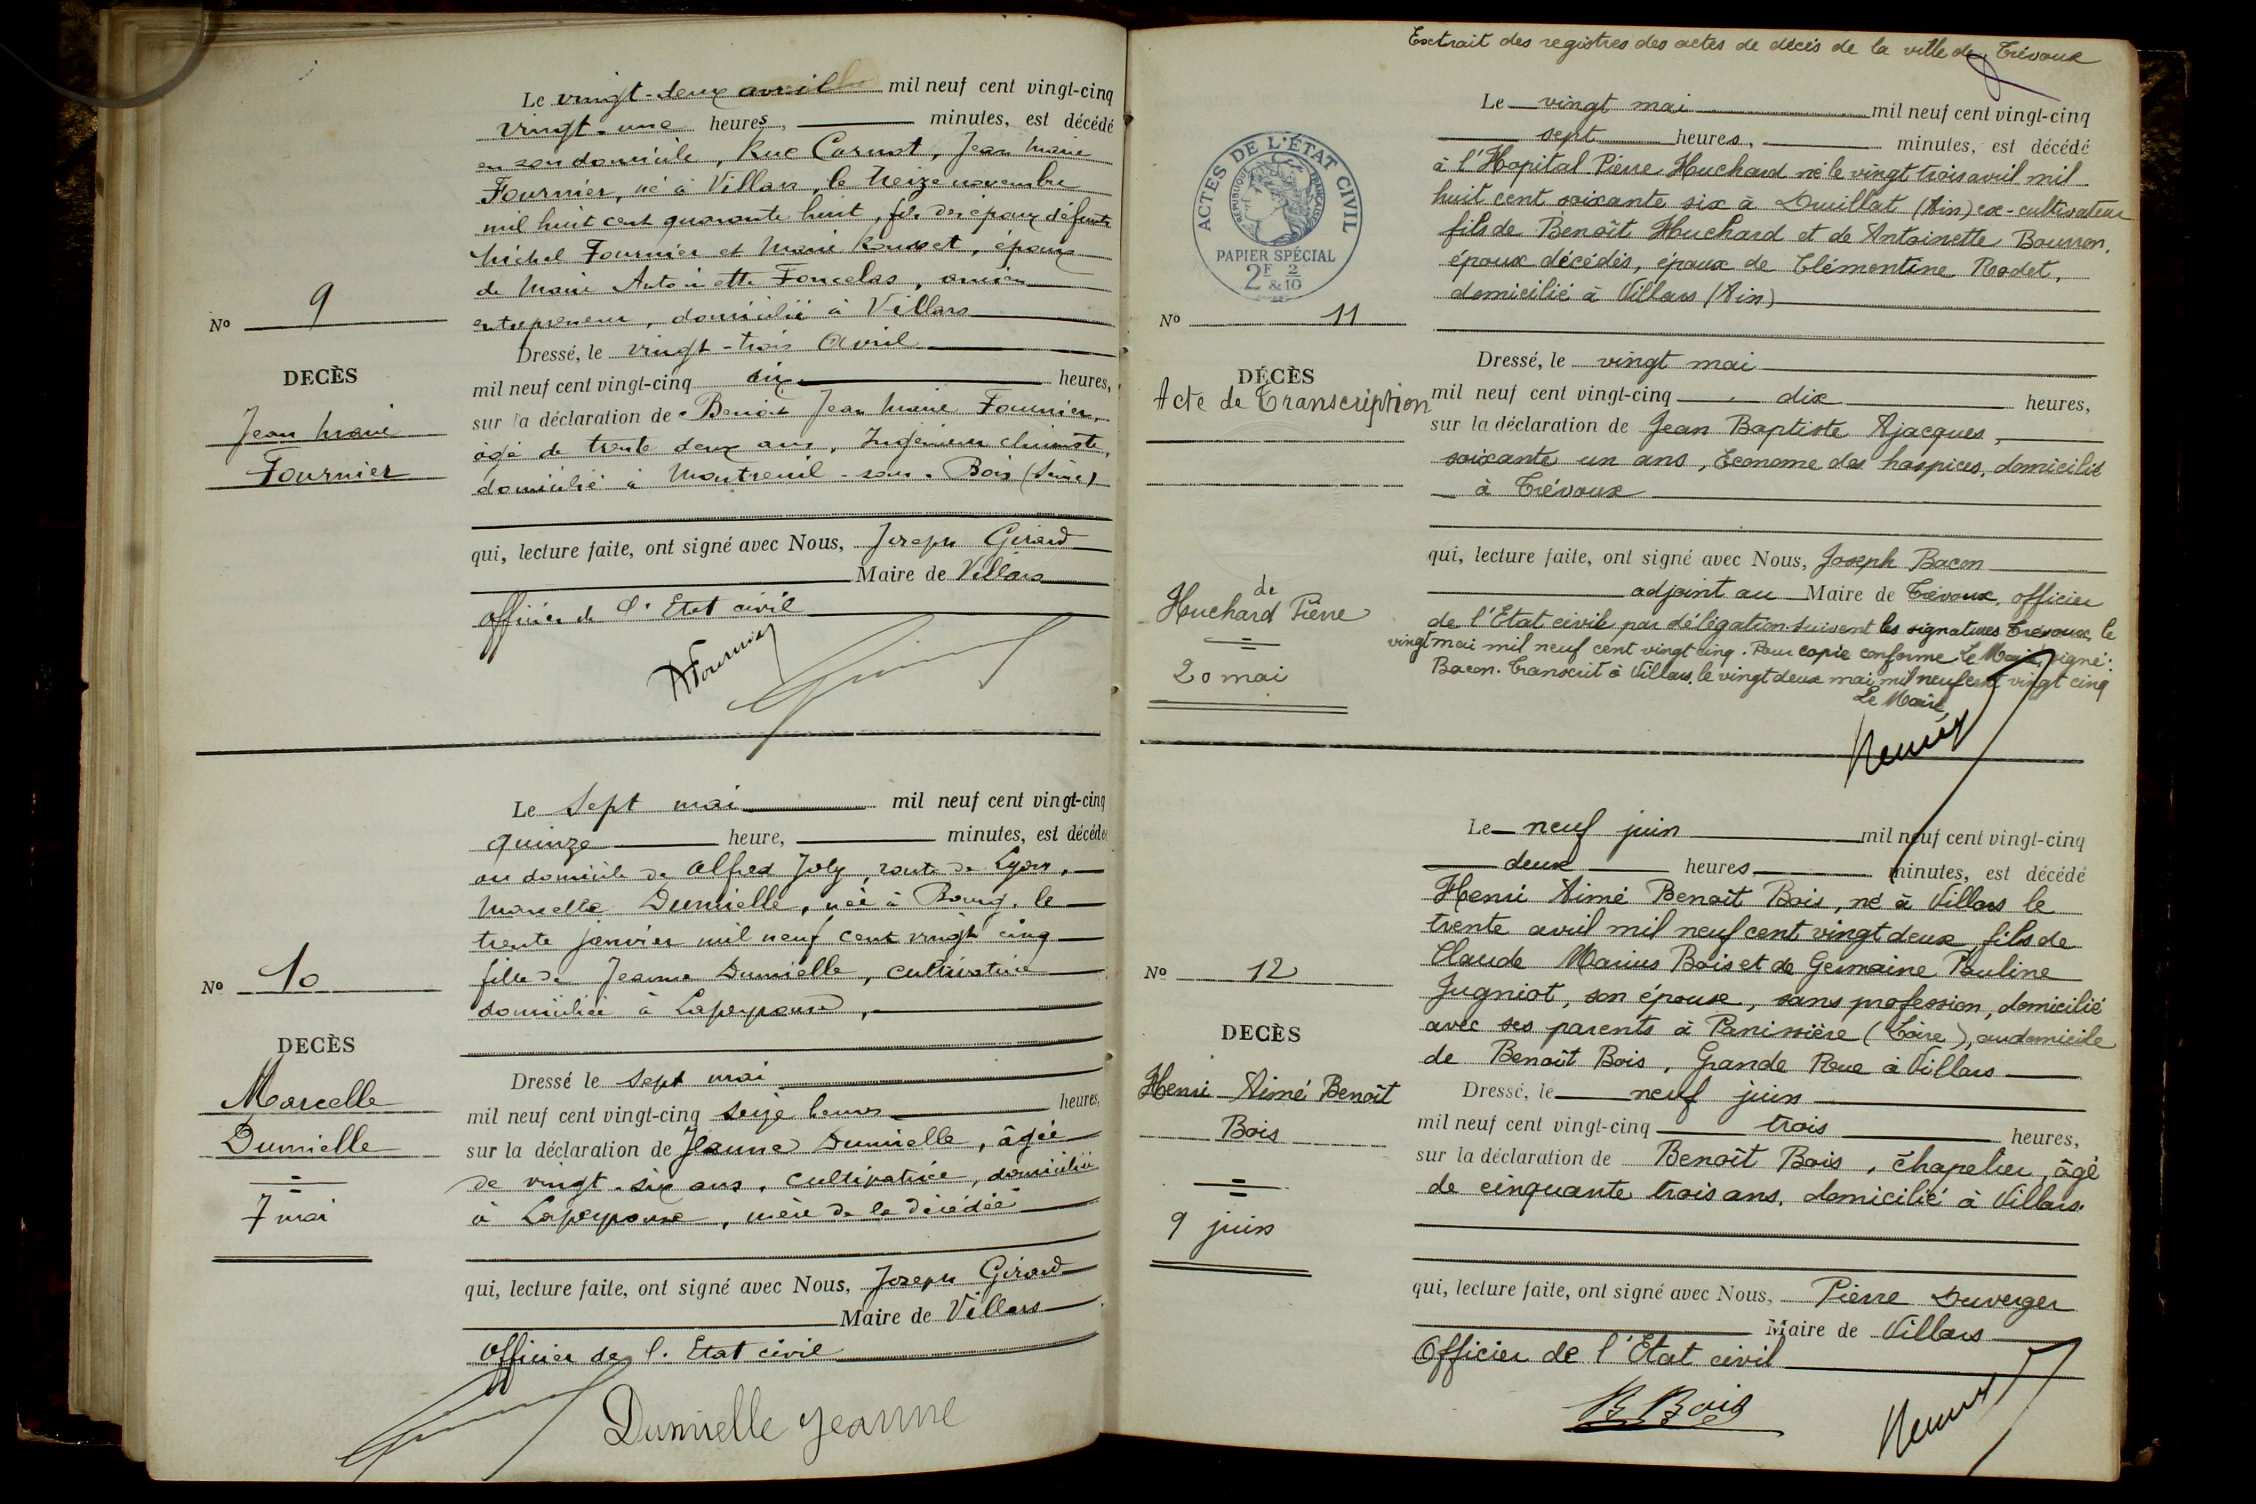 Le vingt-deux avril mil neuf cent vingt-cinq
vingt-une heures, minutes, est décédé
en son domicile, Rue Carnot, Jean Marie
Fournier, né à Villars, le treize novembre
mil huit cent quarante huit, fils des époux défunts
Michel Fournier et Marie Rousset, époux
de Marie Antoinette Foncelas, ancien
entrepreneur, domicilié à Villars
Dressé, le vingt-trois Avril
mil neuf cent vingt-cinq dix heures,
sur la déclaration de Benoit Jean Marie Fournier,
âgé de trente deux ans, Ingénieur chimiste,
domicilié à Montreuil-sous-Bois (Seine)
qui, lecture faite, ont signé avec Nous, Joseph Girard
Maire de Villars
officier de l'Etat civil
Fournier
No 9
DECÈS
Jean Marie
Fournier
Le Sept mai mil neuf cent vingt-cinq
quinze heure, minutes, est décédée
au domicile de Alfred Joly, route de Lyon,
Marcelle Dumielle, née à Bourg, le
trente janvier mil neuf cent vingt cinq
fille de Jeanne Dumielle, cultivatrice
domiciliée à Lapeyrouse,
Dressé le sept mai
mil neuf cent vingt-cinq seize heures heures,
sur la déclaration de Jeanne Dumielle, âgée
de vingt-six ans, cultivatrice, domiciliée
à Lapeyrouse, mère de la décédée
qui, lecture faite, ont signé avec Nous, Joseph Girard
Maire de Villars
Officier de l'Etat civil
Dumielle Jeanne
No 10
DECÈS
Marcelle
Dumielle
7 mai
Extrait des registres des actes de décès de la ville de Trévoux
Le vingt mai mil neuf cent vingt-cinq
sept heures, minutes, est décédé
à l'Hopital Pierre Huchard né le vingt trois avril mil
huit cent soixante six à Druillat (Ain) ex-cultivateur
fils de Benoît Huchard et de Antoinette Bourron,
époux décédés, époux de Clémentine Rodet,
domicilié à Villars (Ain)
Dressé, le vingt mai
mil neuf cent vingt-cinq dix heures,
sur la déclaration de Jean Baptiste Ajacques,
soixante un ans, Econome des hospices, domicilié
à Trévoux
qui, lecture faite, ont signé avec Nous, Joseph Bacon
adjoint au Maire de Trévoux, officier
de l'Etat civil par délégation suivent les signatures Trévoux, le
vingt mai mil neuf cent vingt cinq. Pour copie conforme Le Maire, signé:
Bacon. Transcrit à Villars, le vingt deux mai mil neuf cent vingt cinq
Le Maire,
ACTES DE L'ÉTAT CIVIL
RÉPUBLIQUE FRANÇAISE
PAPIER SPÉCIAL
2F & 2/10
No 11
DÉCÈS
Acte de Transcription
de
Huchard Pierre
20 mai
Le neuf juin mil neuf cent vingt-cinq
deux heures minutes, est décédé
Henri Aimé Benoît Bois, né à Villars le
trente avril mil neuf cent vingt deux, fils de
Claude Marius Bois et de Germaine Pauline
Jugniot, son épouse, sans profession, domicilié
avec ses parents à Panissière (Loire), au domicile
de Benoît Bois, Grande Rue à Villars
Dressé, le neuf juin
mil neuf cent vingt-cinq trois heures,
sur la déclaration de Benoît Bois, chapelier, âgé
de cinquante trois ans, domicilié à Villars.
qui, lecture faite, ont signé avec Nous, Pierre Duverger
Maire de Villars
Officier de l'Etat civil
B Bois
No 12
DECÈS
Henri Aimé Benoît
Bois
9 juin